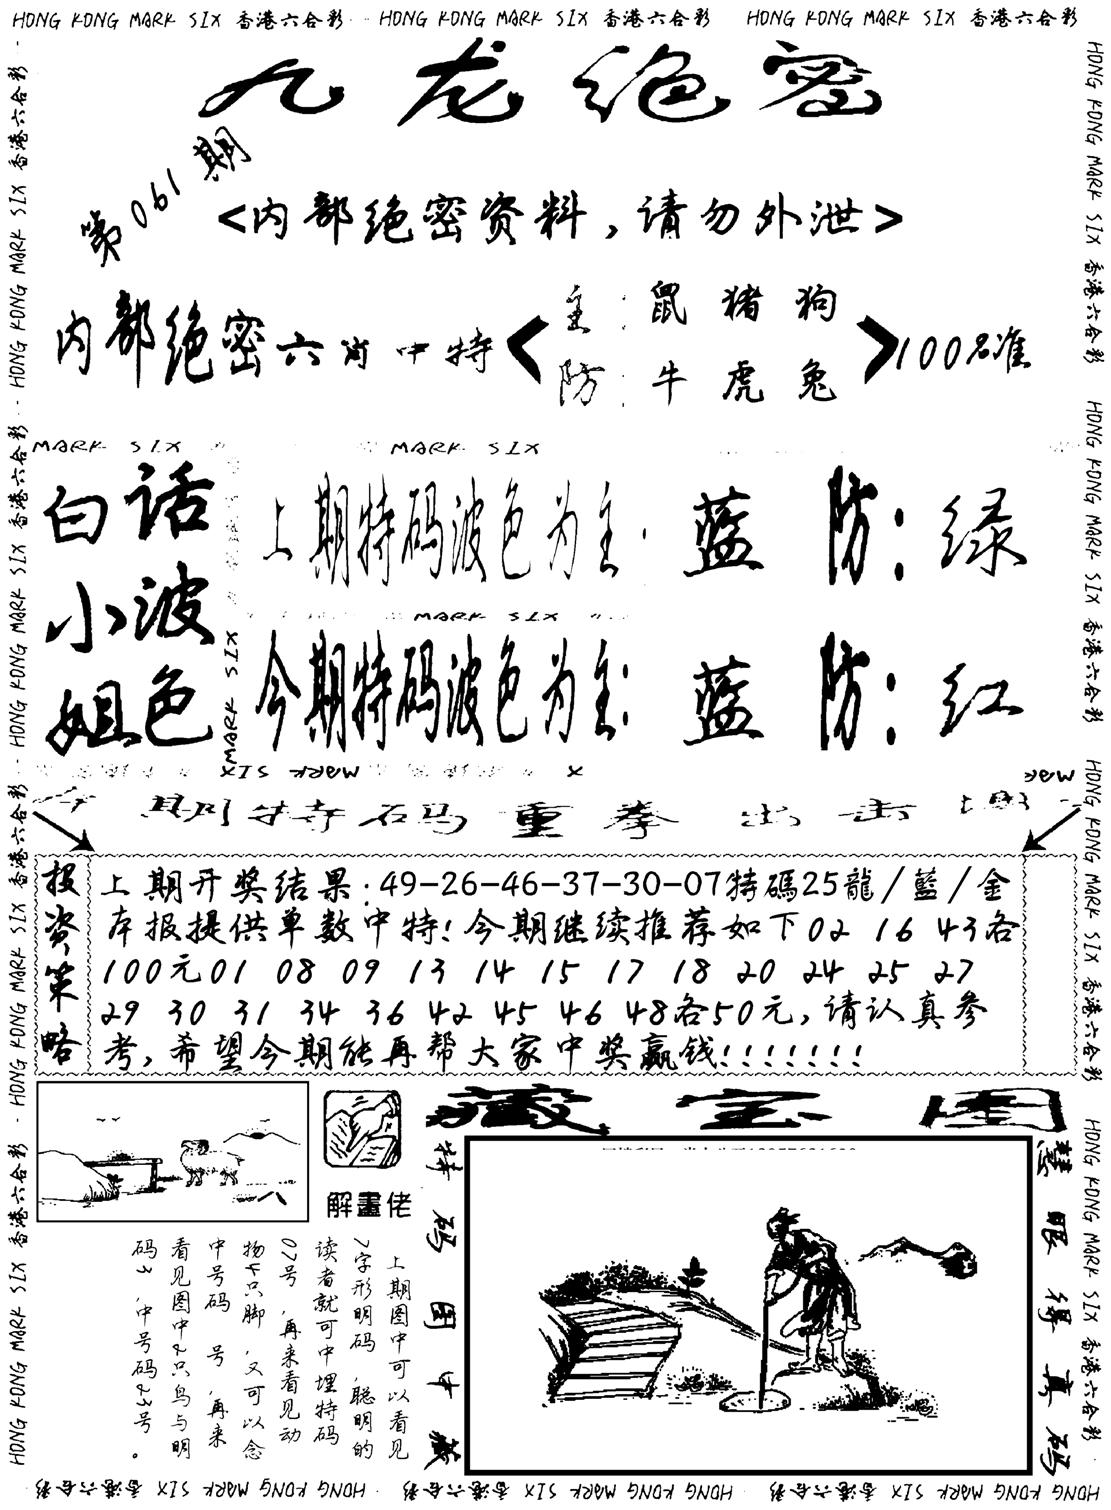 HONG KONG MARK SIX 香港六合彩 HONG KONG MARK SIX 香港六合彩 HONG KONG MARK SIX 香港六合彩
九龙绝密
第061期
<内部绝密资料，请勿外泄>
内部绝密六肖中特
主：鼠 猪 狗
防：牛 虎 兔
100%准
MARK SIX MARK SIX
白小姐
话波色
上期特码波色为主：蓝 防：绿
MARK SIX
今期特码波色为主：蓝 防：红
MARK SIX
期特码重拳出击
投资策略
上期开奖结果:49-26-46-37-30-07特碼25龍/藍/金
本报提供单数中特!今期继续推荐如下02 16 43各
100元01 08 09 13 14 15 17 18 20 24 25 27
29 30 31 34 36 42 45 46 48各50元,请认真参
考,希望今期能再帮大家中奖赢钱!!!!!!!
藏宝图
解畫佬
特码图中藏
慧眼得真码
上期图中可以看见
7字形明码,聪明的
读者就可中埋特码
07号,再来看见动
物4只脚,又可以念
中号码 号,再来
看见图中2只鸟与明
码3,中号码23号。
HONG KONG MARK SIX 香港六合彩 HONG KONG MARK SIX 香港六合彩 HONG KONG MARK SIX 香港六合彩